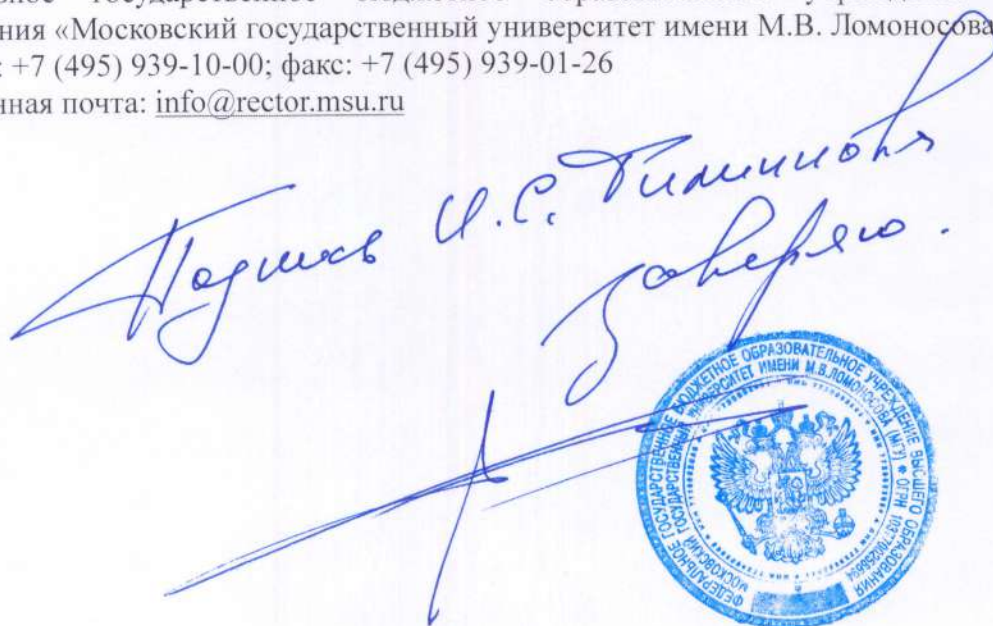 ния «Московский государственный университет имени М.В. Ломоносова
: +7 (495) 939-10-00; факс: +7 (495) 939-01-26
нная почта: info@rector.msu.ru
Подпись И.С.
заверяю.
ФЕДЕРАЛЬНОЕ ГОСУДАРСТВЕННОЕ БЮДЖЕТНОЕ ОБРАЗОВАТЕЛЬНОЕ УЧРЕЖДЕНИЕ ВЫСШЕГО ОБРАЗОВАНИЯ
МОСКОВСКИЙ ГОСУДАРСТВЕННЫЙ УНИВЕРСИТЕТ ИМЕНИ М.В.ЛОМОНОСОВА (МГУ) * ОГРН 1037700258694